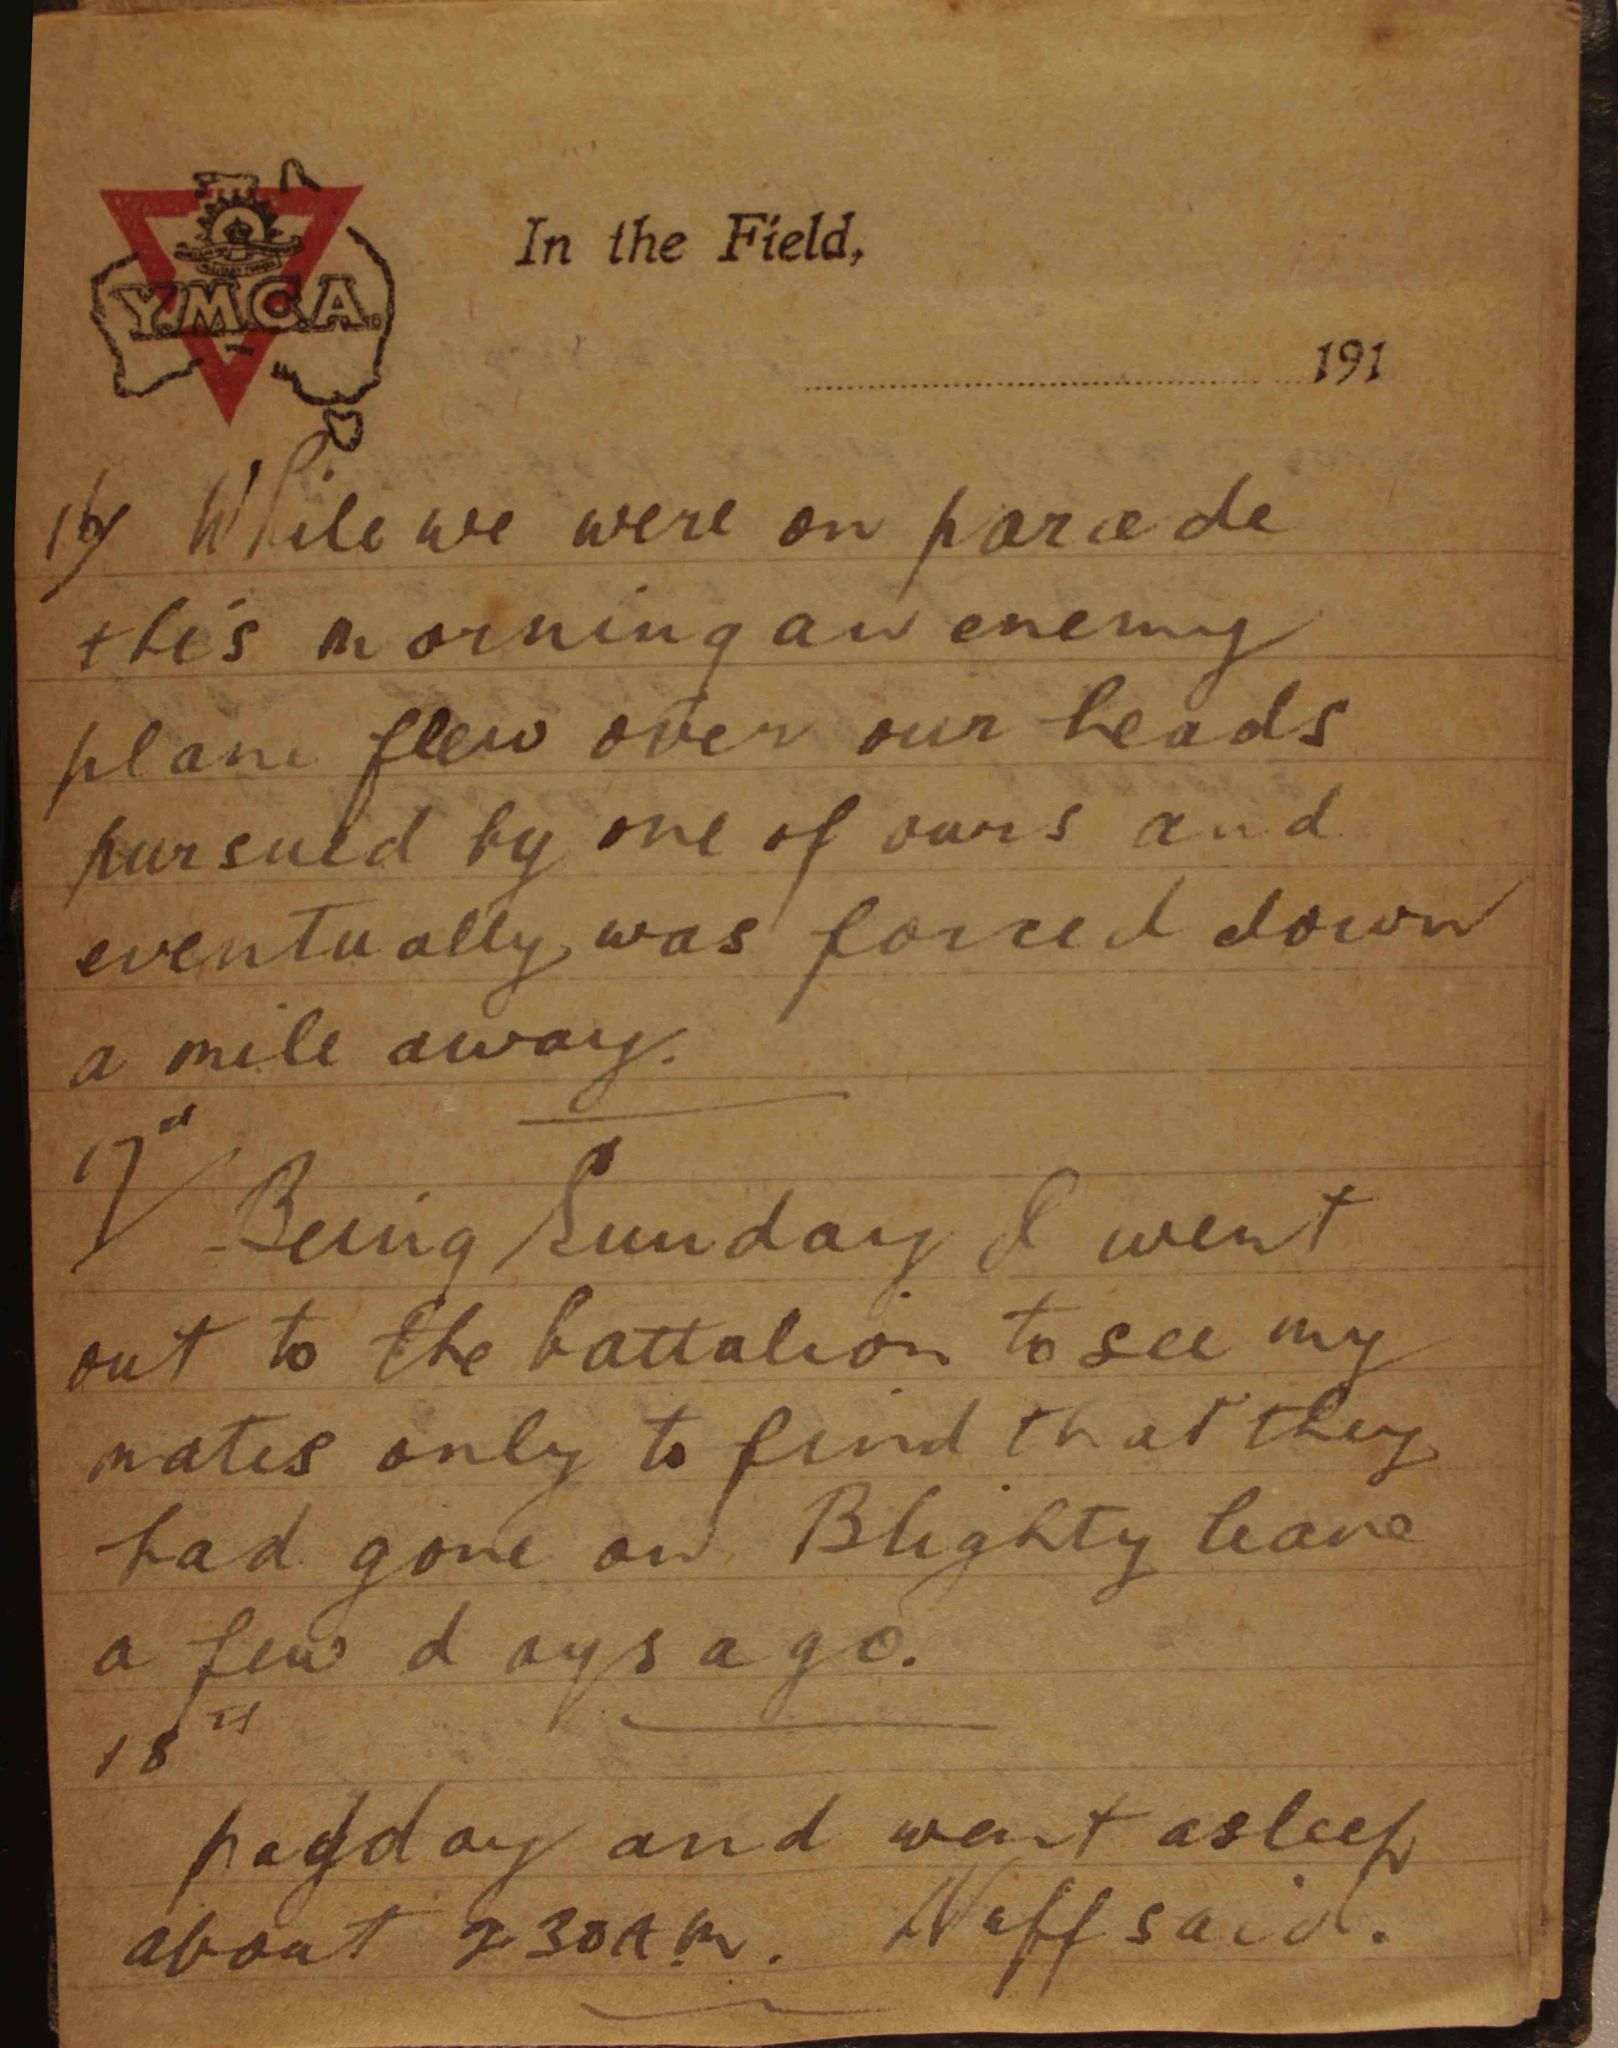 Y.M.C.A.
In the Field,
191
16/ While we were on parade
this morning an enemy
plane flew over our heads
pursued by one of ours and
eventually was forced down
a mile away.
17th/
Being Sunday I went
out to the battalion to see my
mates only to find that they
had gone on Blighty leave
a few days ago.
18th
payday and went asleep
about 2 30 AM. Nuff said.